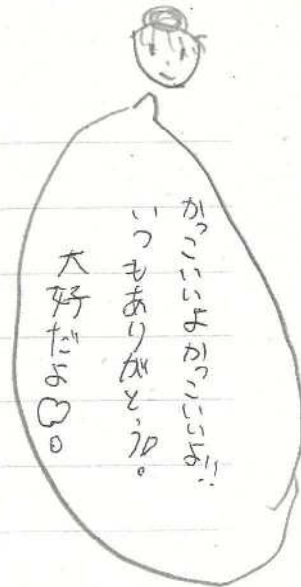 かっこいいよかっこいいよ!!
いつもありがとう♡。
大好だよ♡。